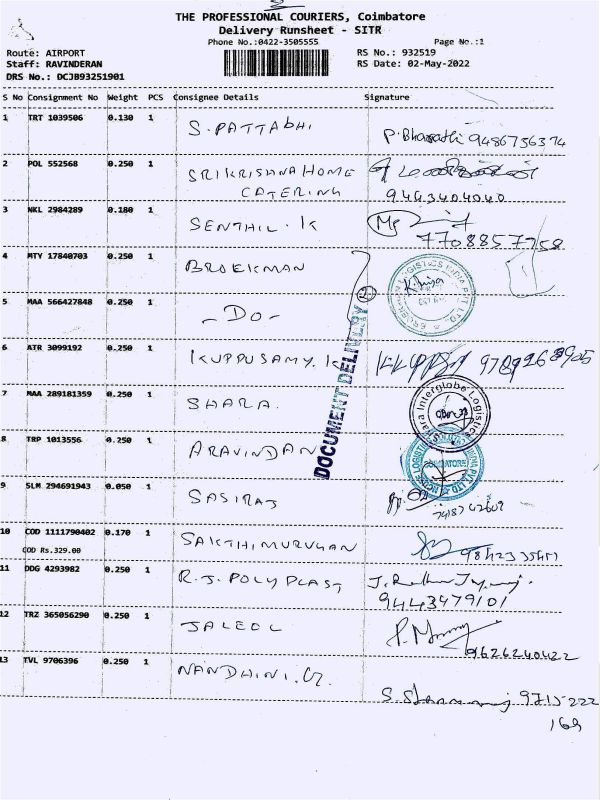 THE PROFESSIONAL COURIERS, Coimbatore
Delivery Runsheet - SITR
Phone No.:0422-3505555 Page No.:1
Route: AIRPORT RS No.: 932519
Staff: RAVINDERAN RS Date: 02-May-2022
DRS No.: DCJB93251901
S No Consignment No Weight PCS Consignee Details Signature
1 TRT 1039506 0.130 1 S.PATTABHI P.Bharathi 9486736374
2 POL 552568 0.250 1 SRIKRISHNA HOME
CATERING 9443404040
3 NKL 2984289 0.180 1 SENTHIL.K
7708857758
4 MTY 17840703 0.250 1 BROEKMAN
5 MAA 566427848 0.250 1 -DO-
DOCUMENT DELIVERY 2
6 ATR 3099192 0.250 1 KUPPUSAMY.K
7 MAA 289181359 0.250 1 SHARA. Interglobe Logistics
8 TRP 1013556 0.250 1 ARAVINDAN COIMBATORE
9 SLM 294691943 0.050 1 SASIRAJ
10 COD 1111790402 0.170 1 SAKTHIMURUGAN
COD Rs.329.00
11 DDG 4293982 0.250 1 R.J.POLYPLAST
9443479101
12 TRZ 365056290 0.250 1 JALEEL
9626240422
13 TVL 9706396 0.250 1 NANDHINI.G
9715222
169